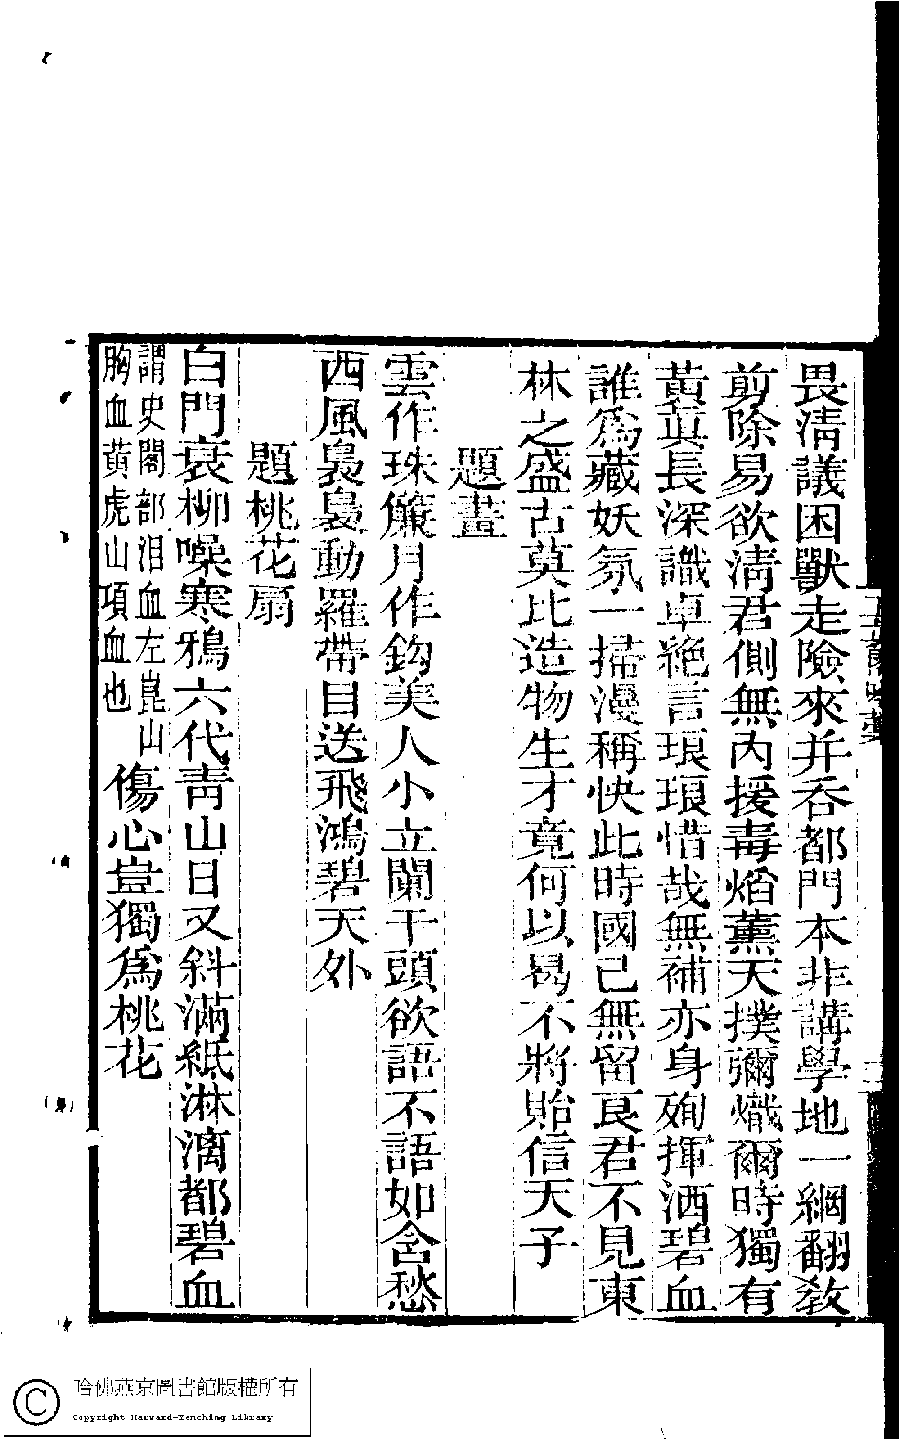 畏淸議困獸走險來并吞都門本非講學地一網翻敎
剪除易欲淸君側無內援毒燄薰天撲彌熾爾時獨有
黃眞長深識卓絶言琅琅惜哉無補亦身殉揮洒碧血
誰爲藏妖氛一掃漫稱快此時國已無留良君不見東
林之盛古莫比造物生才竟何以曷不將貽信天子
題畫
雲作珠簾月作鈎美人小立闌干頭欲語不語如含愁
西風裊裊動羅帶目送飛鴻碧天外
題桃花扇
白門衰柳噪寒鴉六代靑山日又斜滿紙淋漓都碧血
謂史閣部泪血左崑山
胸血黃虎山項血也
傷心豈獨爲桃花
哈佛燕京圖書館版權所有
Copyright Harvard-Yenching Library